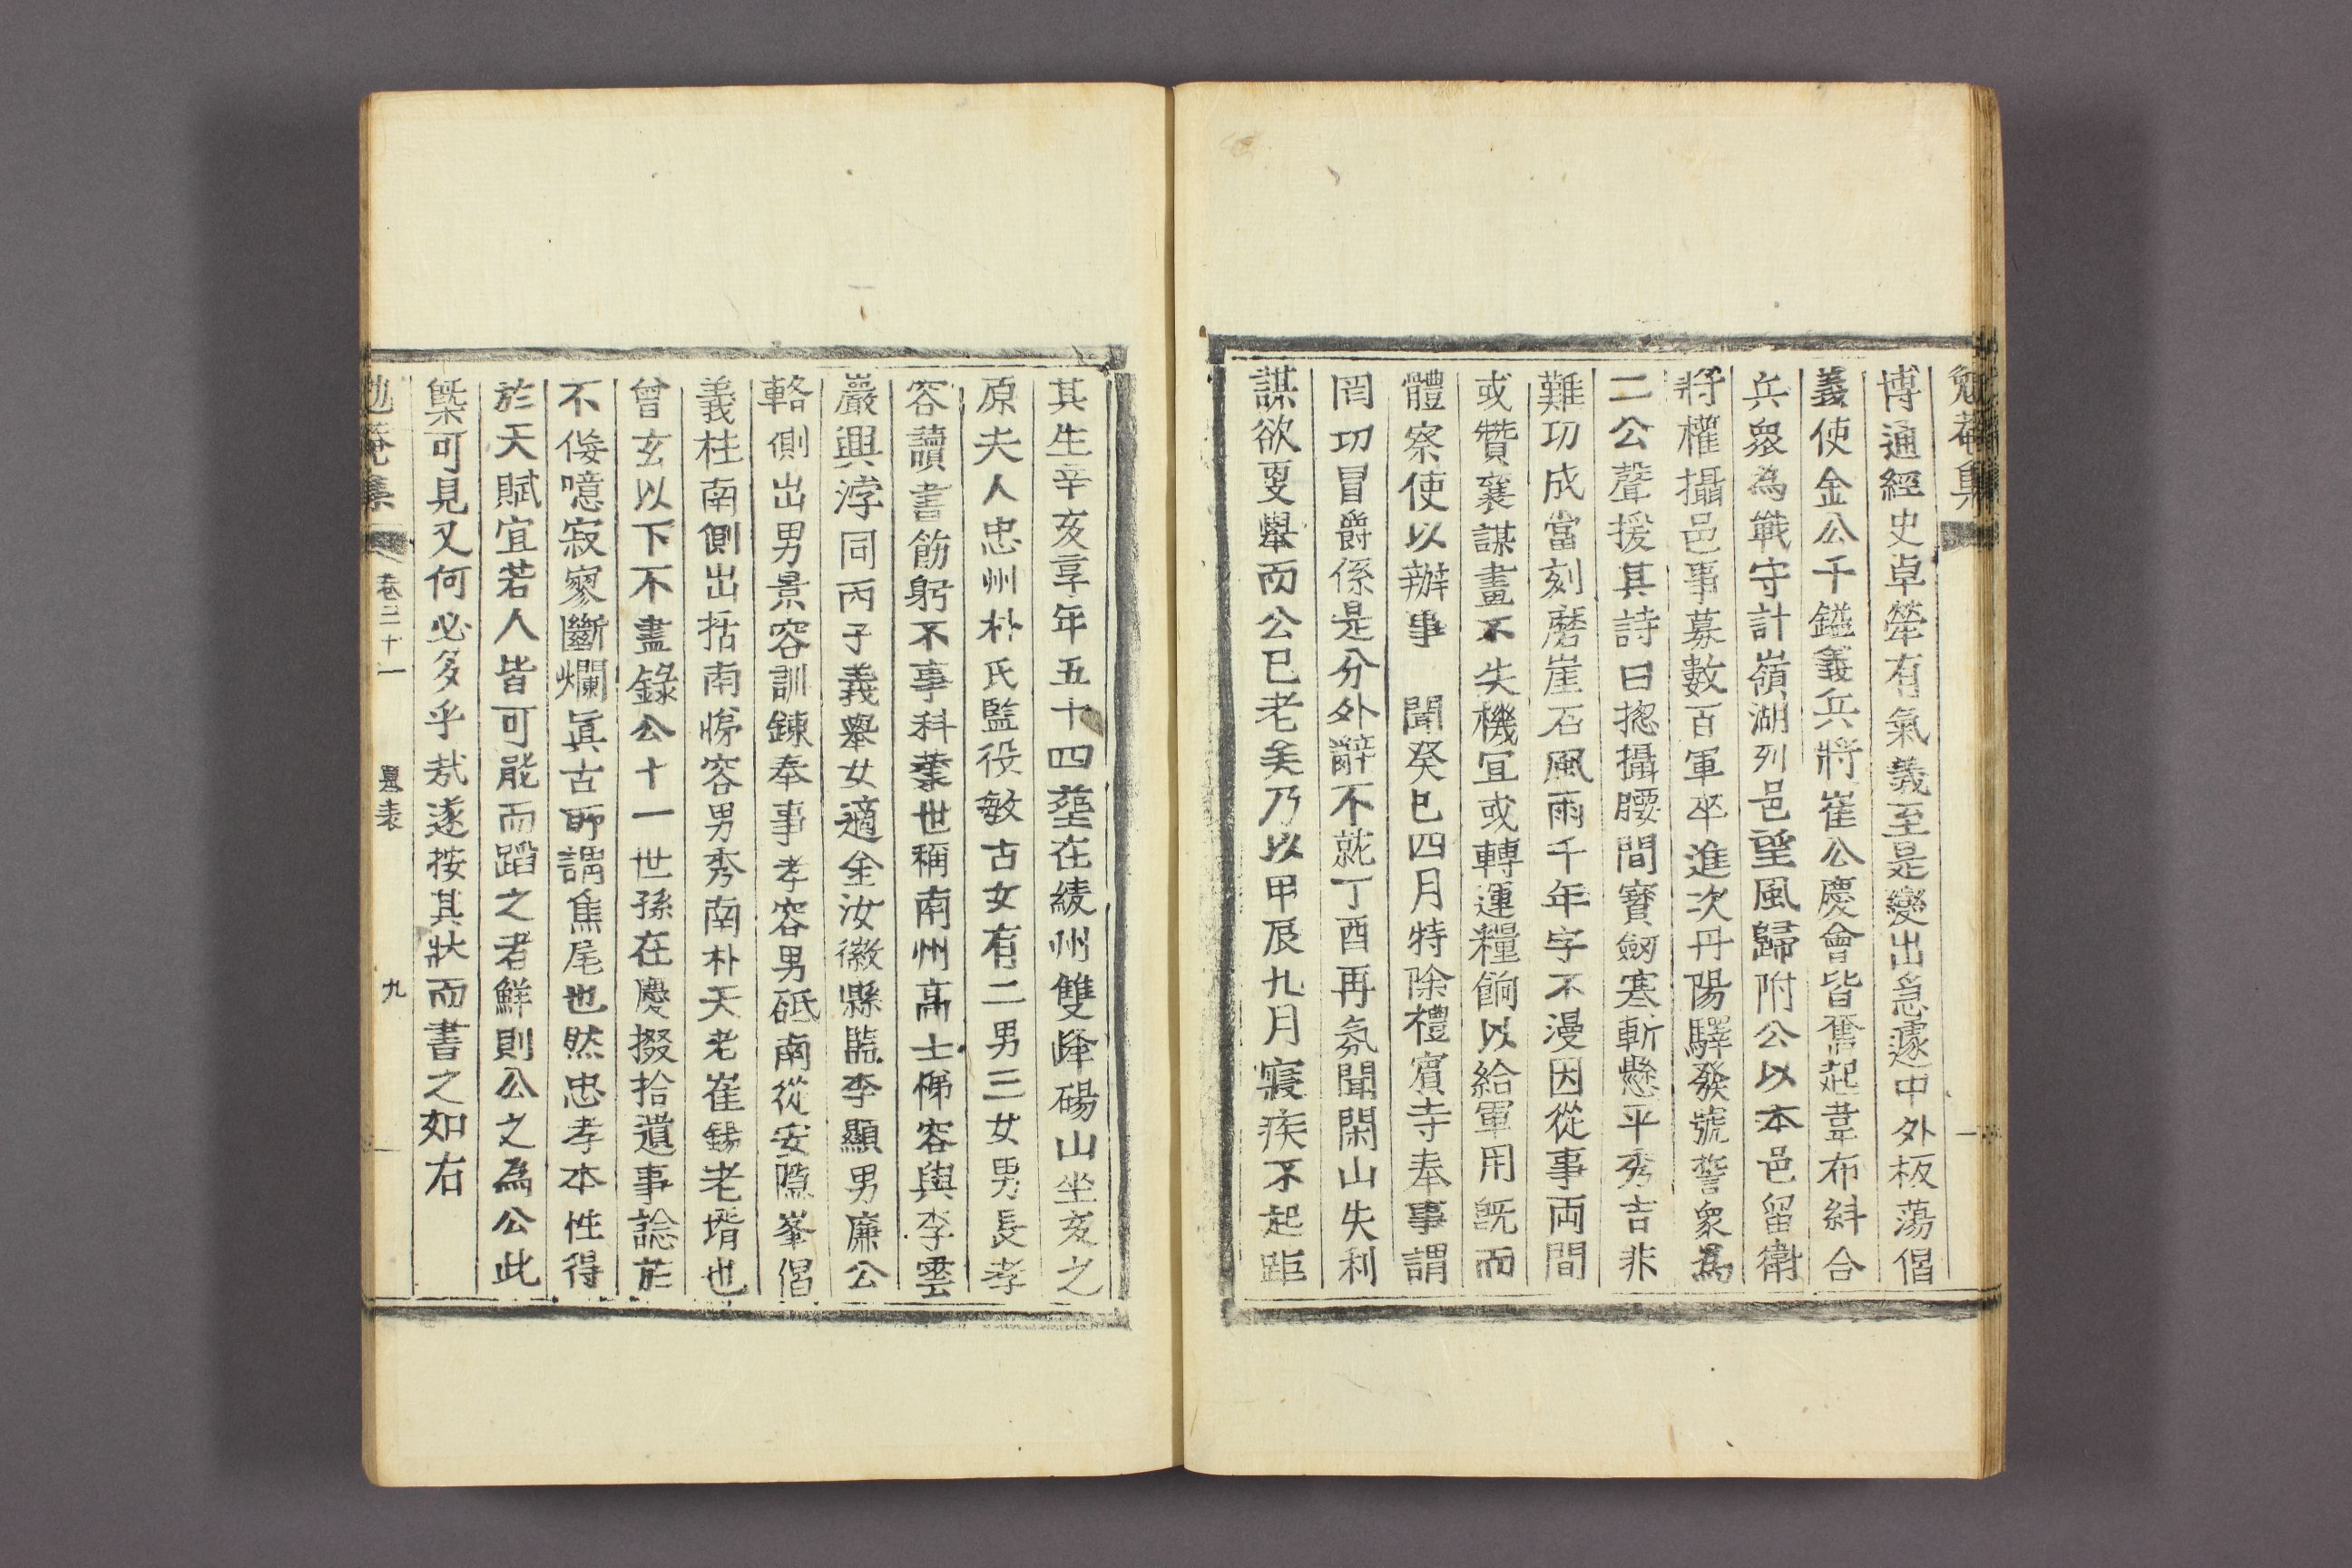 勉菴集
博通經史卓犖有氣義至是變出急遽中外板蕩倡
義使金公千鎰義兵將崔公慶會皆奮起韋布糾合
兵衆為戰守計嶺湖列邑望風歸附公以本邑留衛
將權攝邑事募數百軍卒進次丹陽驛發號誓衆為
二公聲援其詩曰揔攝腰間寶劒寒斬懸平秀吉非
難功成當刻磨崖石風雨千年字不漫因從事両間
或贊襄謀畫不失機宜或轉運糧餉以給軍用旣而
體察使以辦事　聞癸巳四月特除禮賓寺奉事謂
罔功冒爵係是分外辭不就丁酉再氛聞閑山失利
謀欲更舉而公已老矣乃以甲辰九月寢疾不起距
其生辛亥享年五十四塟在綾州雙峰碭山坐亥之
原夫人忠州朴氏監役敏古女有二男三女男長孝
容讀書飭躬不事科業世稱南州高士悌容與李雲
巖興浡同丙子義舉女適金汝徽縣監李顯男廉公
輅側出男景容訓鍊奉事孝容男砥南從安隱峯倡
義柱南側出括南悌容男秀南朴天老崔錫老壻也
曾玄以下不盡錄公十一世孫在慶掇拾遺事諗於
不佞噫寂寥斷爛眞古所謂焦尾也然忠孝本性得
於天賦宜若人皆可能而蹈之者鮮則公之為公此
槩可見又何必多乎㦲遂按其狀而書之如右
勉菴集　卷三十一　墓表　九